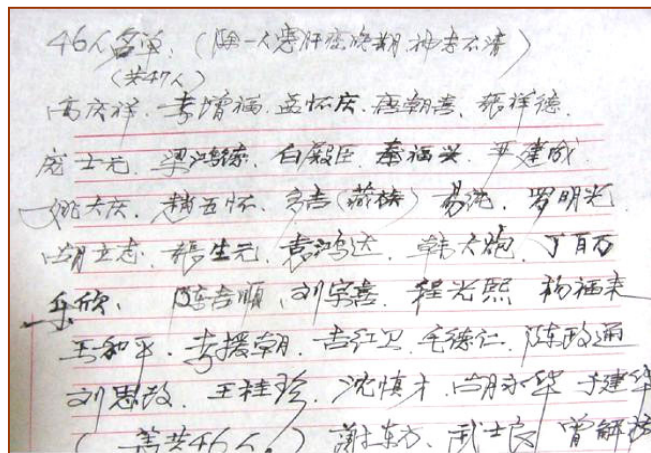 46人名单:(除一人患肝癌晚期,神志不清)
(共47人)
高庆祥、李增福、孟怀庆、唐朝喜、张祥德、
庞士元、梁鸿德、白殿臣、秦福兴、平建成、
姚大庆、赵五怀、多吉(藏族)易纯、罗明光、
胡立志、张生元、袁鸿达、韩大炮、丁百万
乐欣、陈吉顺、刘宗喜、程光熙、杨福来
王和平、李援朝、吉红卫、毛德仁、陈政通
刘思政、王桂珍、沈慎才、胡永华、于建华
(共46人。)谢东方、武士良、曾解放